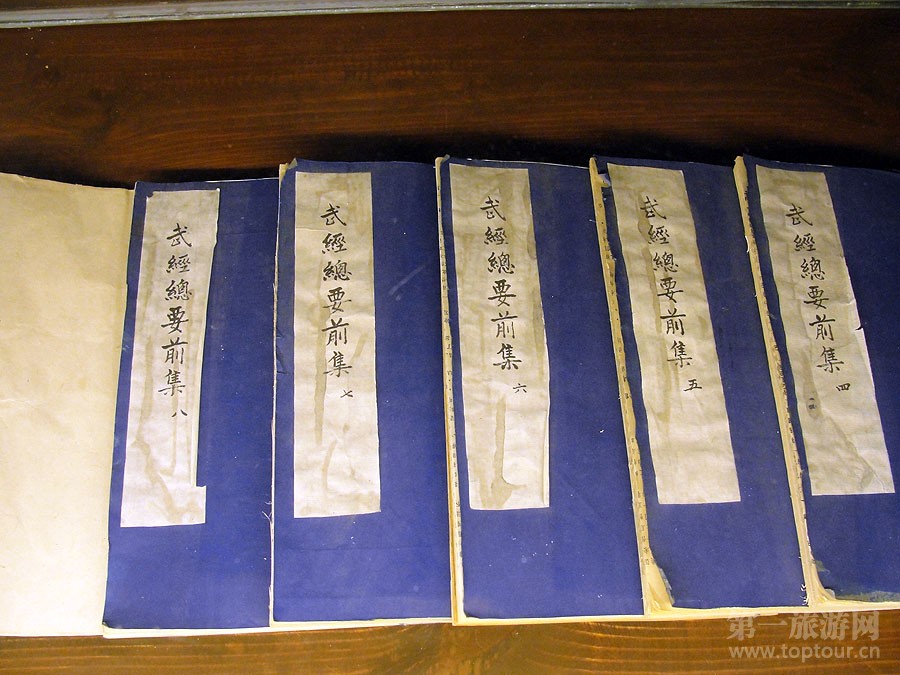 武經總要前集 四
武經總要前集 五
武經總要前集 六
武經總要前集 七
武經總要前集 八
第一旅游网
www.toptour.cn